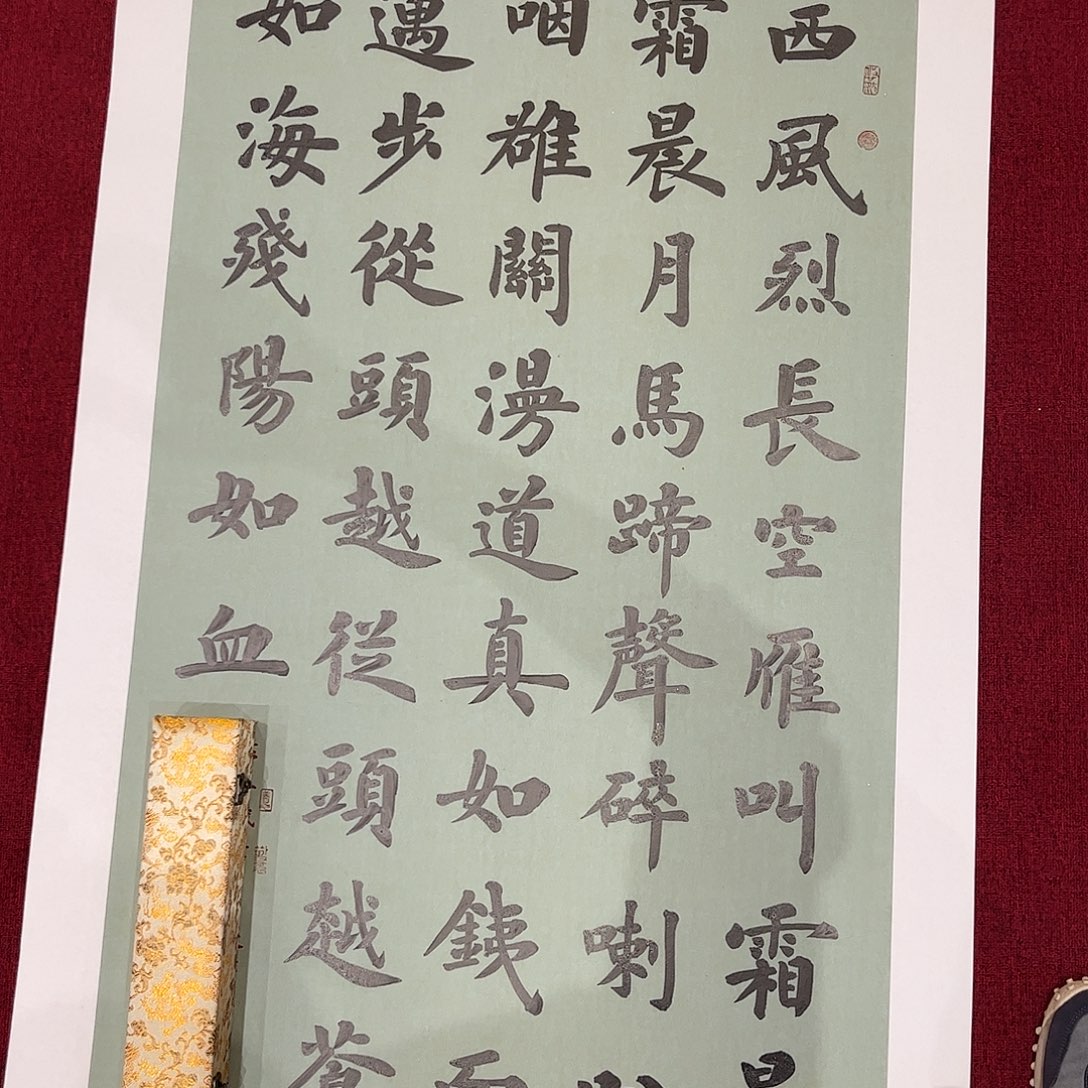 西風烈長空雁叫霜
霜晨月馬蹄聲碎喇
咽雄關漫道真如銕而
邁步從頭越従頭越蒼
如海殘陽如血